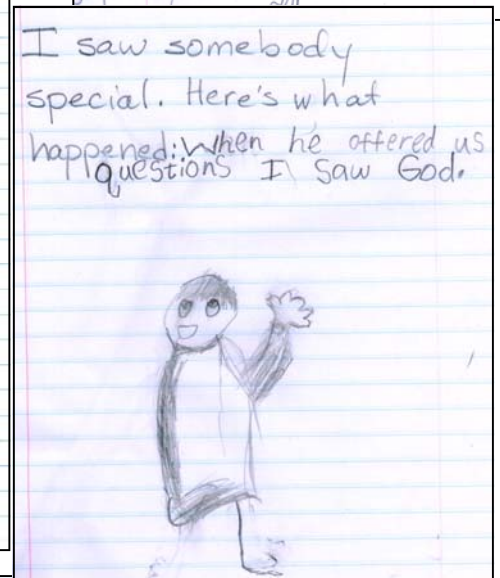 I saw somebody
special. Here's what
happened: When he offered us
questions I saw God.